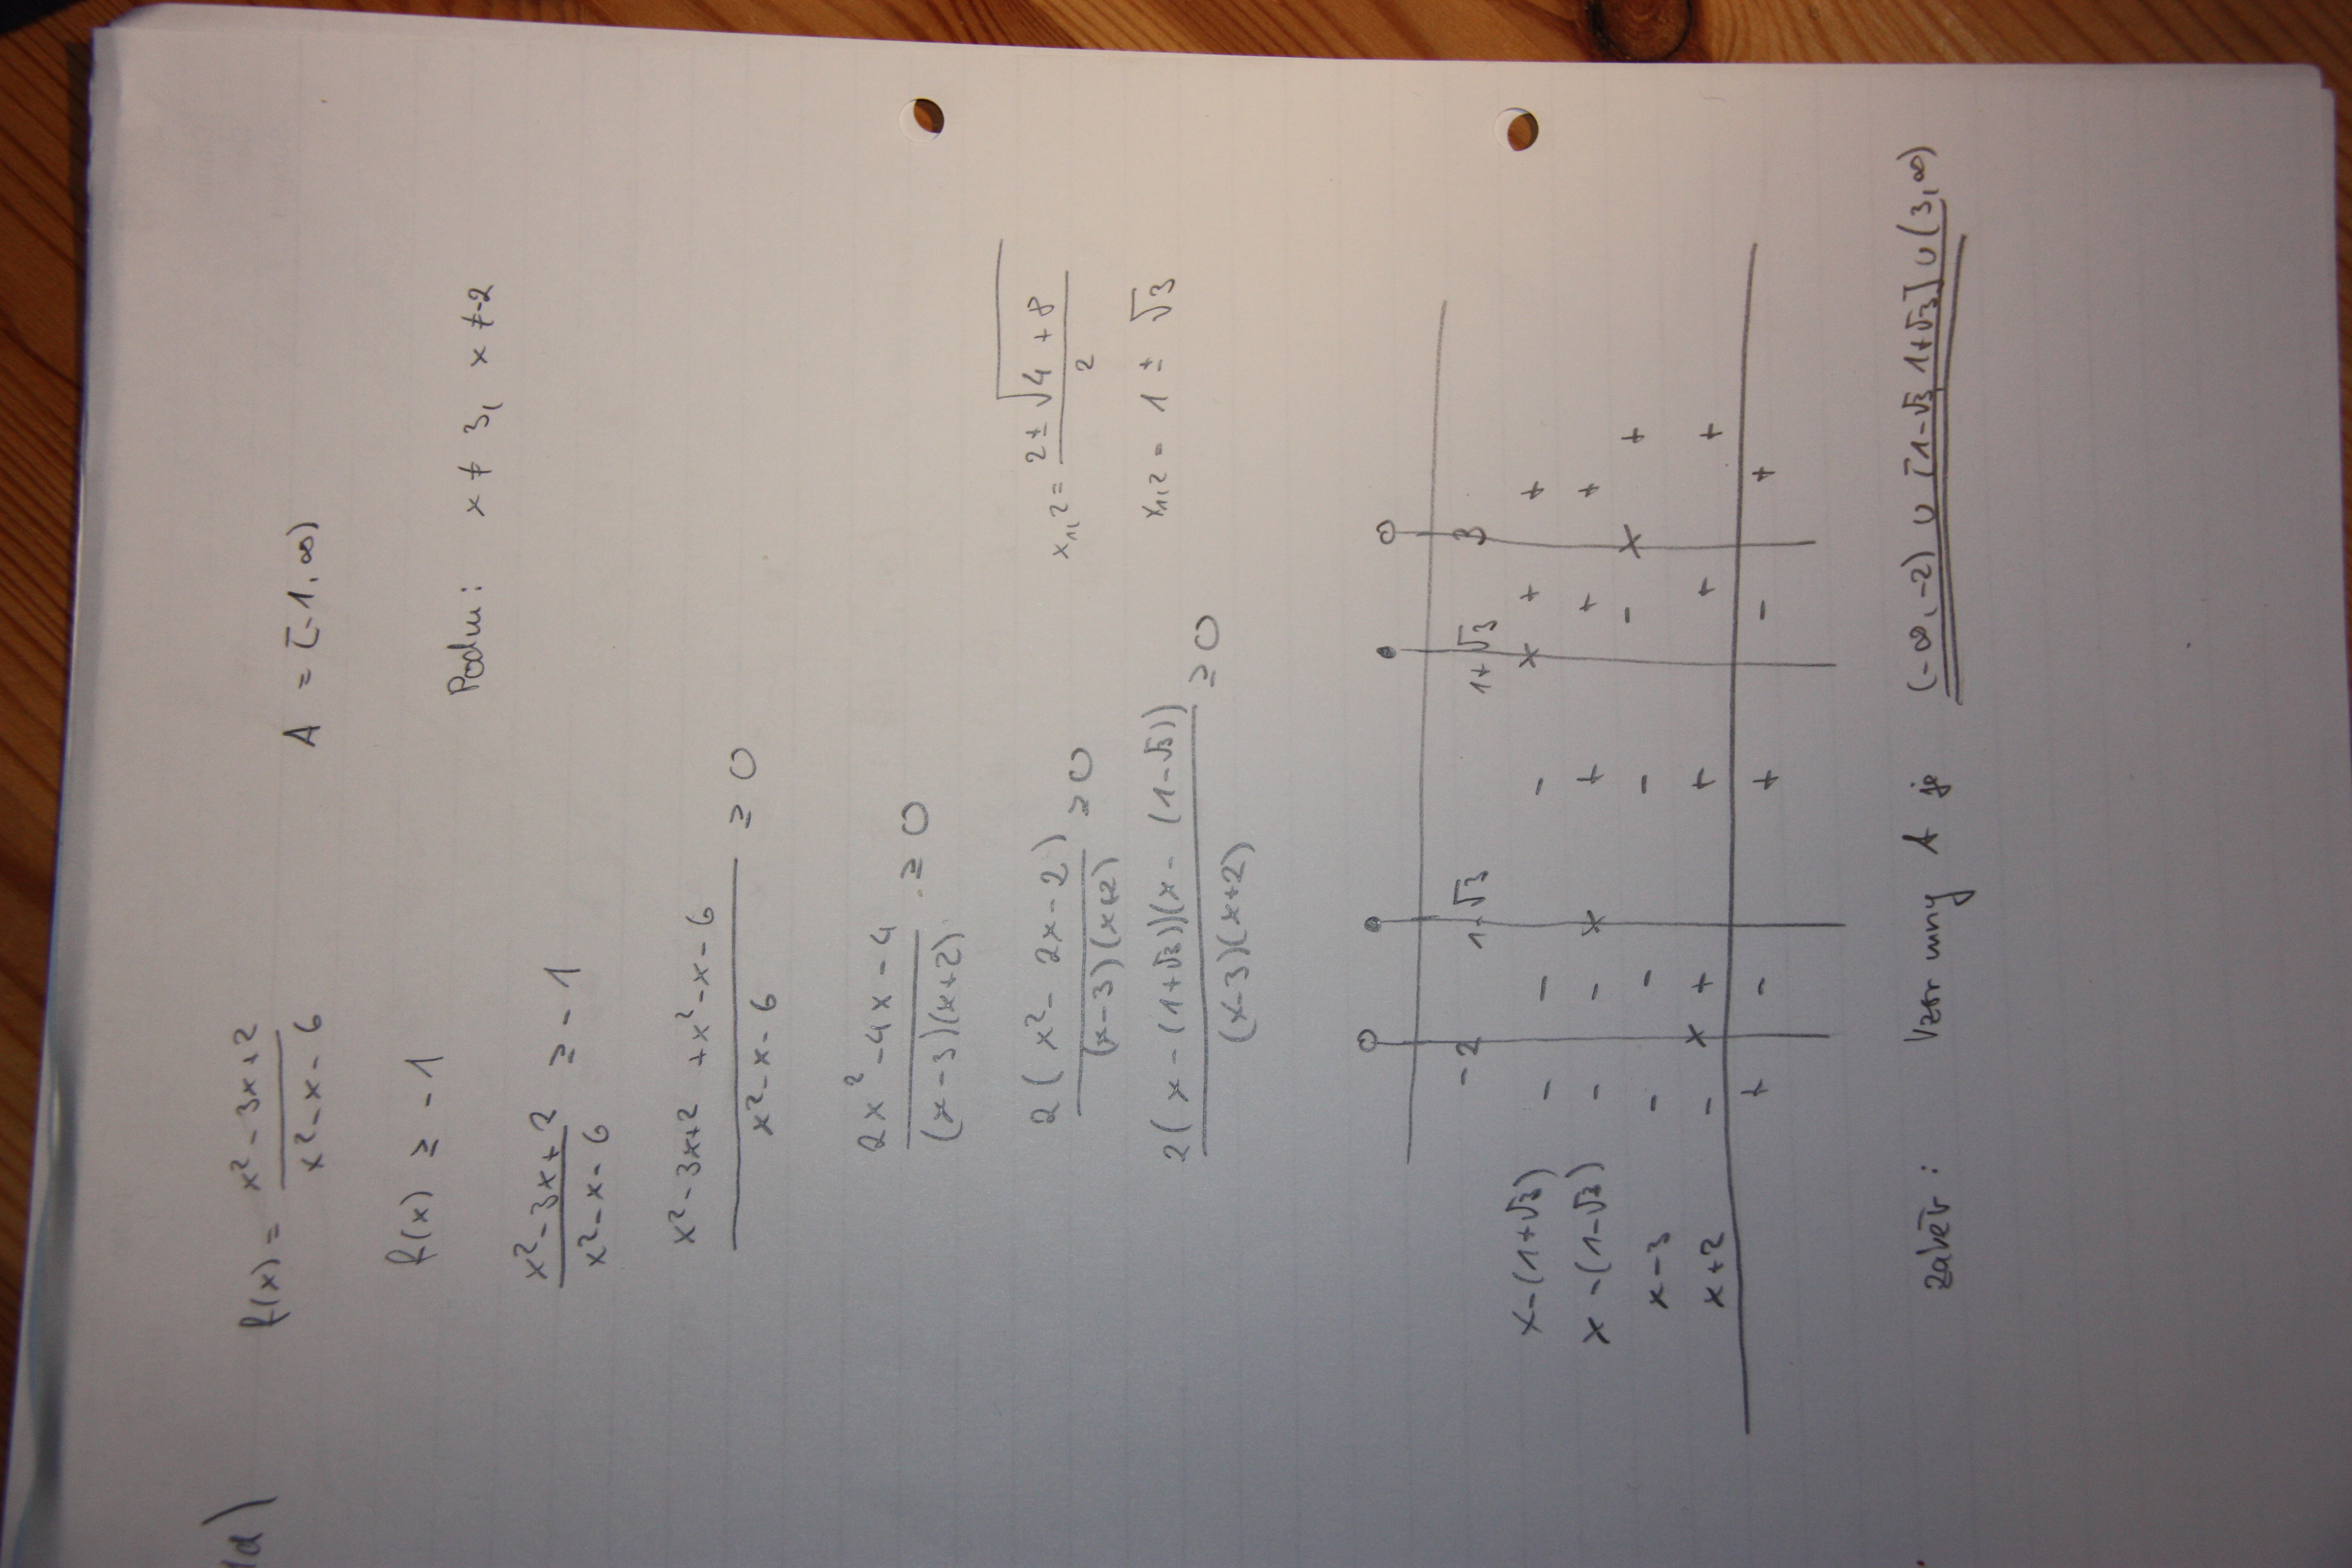 1d)
f(x) = (x² - 3x + 2)/(x² - x - 6)    A = [-1, ∞)
f(x) ≥ -1    Podm: x ≠ 3, x ≠ -2
(x² - 3x + 2)/(x² - x - 6) ≥ -1
(x² - 3x + 2 + x² - x - 6)/(x² - x - 6) ≥ 0
(2x² - 4x - 4)/((x - 3)(x + 2)) ≥ 0
2(x² - 2x - 2)/((x - 3)(x + 2)) ≥ 0    x₁,₂ = (2 ± √4 + 8)/2
2(x - (1+√3))(x - (1-√3))/((x-3)(x+2)) ≥ 0    x₁,₂ = 1 ± √3
-2    1-√3    1+√3    3
x - (1+√3)    -    -    -    x    +    +
x - (1-√3)    -    -    x    +    +    +
x - 3    -    -    -    -    x    +
x + 2    -    x    +    +    +    +
+    -    +    -    +
závěr: Vzor mny A je (-∞, -2) ∪ [1-√3, 1+√3] ∪ (3, ∞)